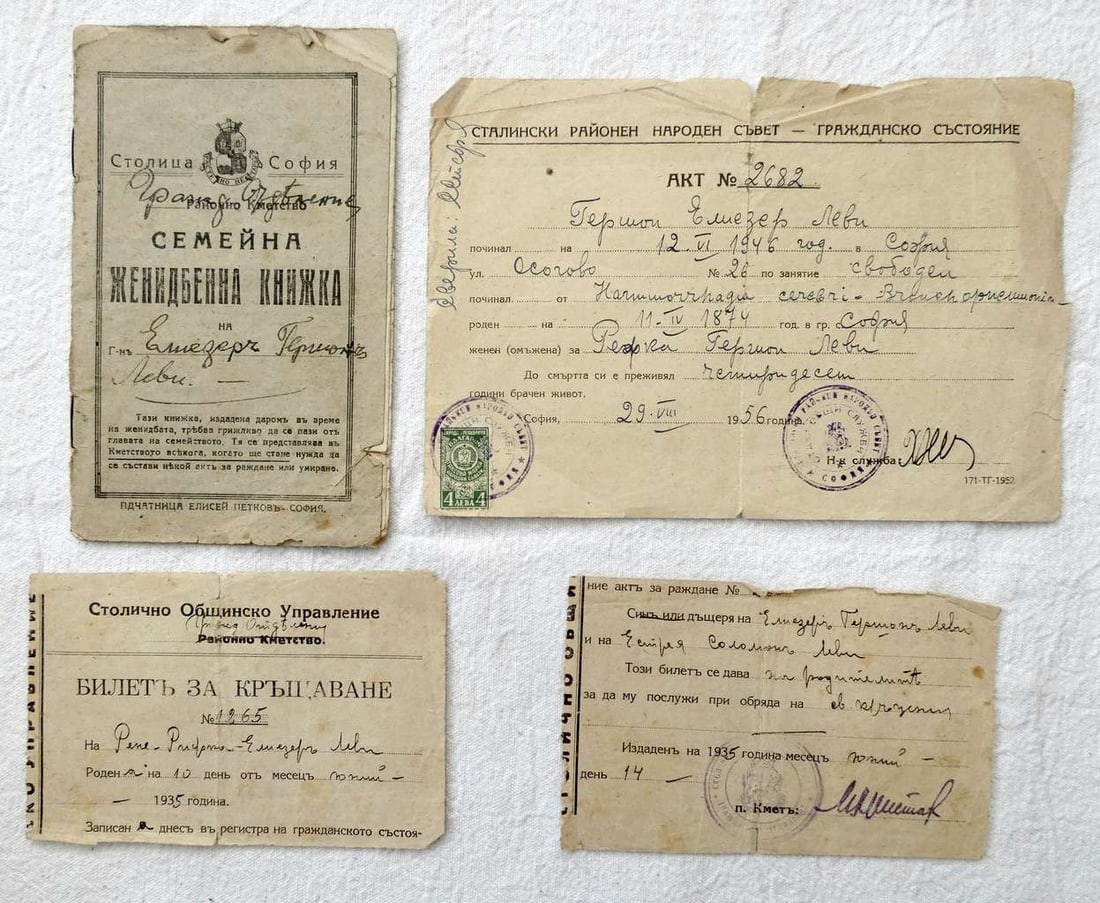 Столица София
Гражд. Отдѣление
Районно Кметство
СЕМЕЙНА
ЖЕНИДБЕННА КНИЖКА
НА
Г-нъ Елиезеръ Гершонъ
Леви. —
Тази книжка, издадена даромъ въ време
на женидбата, трѣбва грижливо да се пази отъ
главата на семейството. Тя се представлява въ
Кметството всѣкога, когато ще стане нужда да
се състави нѣкой актъ за раждане или умиране.
ПЕЧАТНИЦА ЕЛИСЕЙ ПЕТКОВЪ - СОФИЯ.
СТАЛИНСКИ РАЙОНЕН НАРОДЕН СЪВЕТ — ГРАЖДАНСКО СЪСТОЯНИЕ
АКТ № 2682
Гершон Елиезер Леви
починал на 12. VI 1946 год. в София
ул. Осогово № 26 по занятие свободен
починал от
роден на 11-IV 1874 год. в гр. София
женен (омъжена) за Рефка Гершон Леви
До смъртта си е преживял четиридесет
години брачен живот.
София, 29. VIII 1956 година.
Н-к служба
171-ТГ-1952
4 ЛЕВА 4
Столично Общинско Управление
Гражд. Отдѣление
Районно Кметство.
БИЛЕТЪ ЗА КРЪЩАВАНЕ
№ 1265
На Рене-Рифка-Елиезеръ Леви
Родена на 10 день отъ месецъ юний —
— 1935 година.
Записана днесъ въ регистра на гражданското състоя-
ние актъ за раждане №
Синъ или дъщеря на Елиезеръ Гершонъ Леви
и на Естрея Соломонъ Леви
Този билетъ се дава на родителитѣ
за да му послужи при обряда на св. кръщение
Издаденъ на 1935 година месецъ юний —
день 14 —
п. Кметъ: